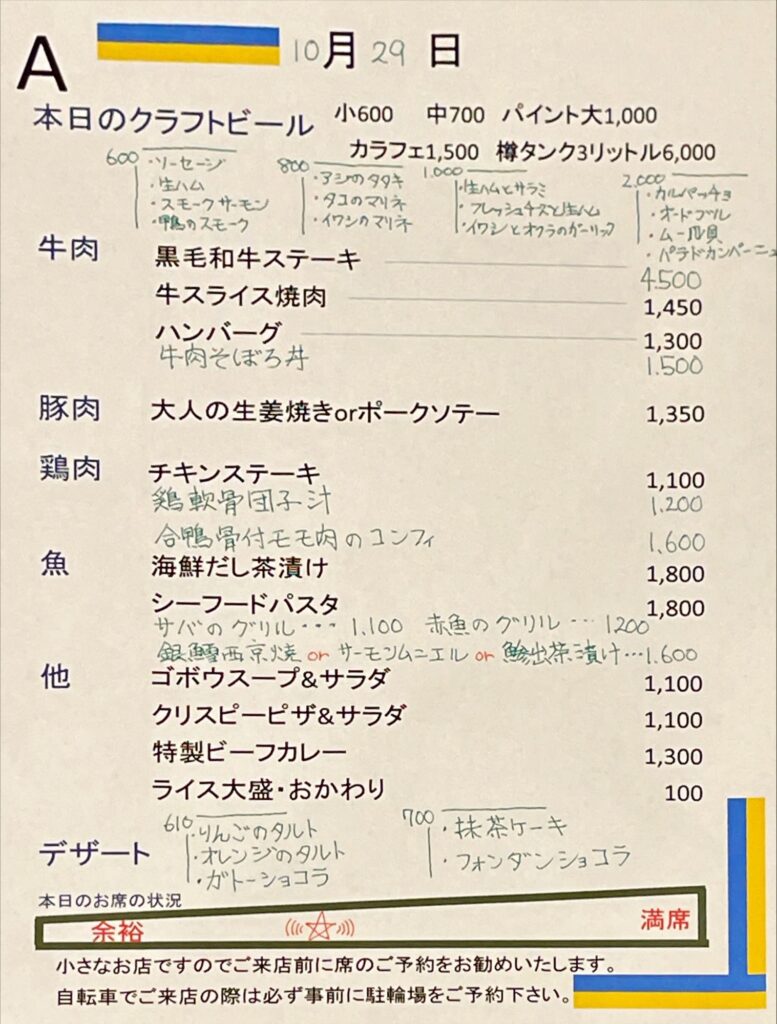 A
10月29日
本日のクラフトビール 小600 中700 パイント大1,000
カラフェ1,500 樽タンク3リットル6,000
600
・ソーセージ
・生ハム
・スモークサーモン
・鴨のスモーク
800
・アジのタタキ
・タコのマリネ
・イワシのマリネ
1.000
・生ハムとサラミ
・フレッシュチーズと生ハム
・イワシとオクラのガーリック
2.000
・カルパッチョ
・オードブル
・ムール貝
・パラドカンパーニュ
牛肉 黒毛和牛ステーキ 4.500
牛スライス焼肉 1,450
ハンバーグ 1,300
牛肉そぼろ丼 1.500
豚肉 大人の生姜焼きorポークソテー 1,350
鶏肉 チキンステーキ 1,100
鶏軟骨団子汁 1.200
合鴨骨付モモ肉のコンフィ 1.600
魚 海鮮だし茶漬け 1,800
シーフードパスタ 1,800
サバのグリル・・・1.100 赤魚のグリル・・・1200
銀鱈西京焼 or サーモンムニエル or 鯵出茶漬け・・・1.600
他 ゴボウスープ&サラダ 1,100
クリスピーピザ&サラダ 1,100
特製ビーフカレー 1,300
ライス大盛・おかわり 100
デザート
610
・りんごのタルト
・オレンジのタルト
・ガトーショコラ
700
・抹茶ケーキ
・フォンダンショコラ
本日のお席の状況
余裕 満席
小さなお店ですのでご来店前に席のご予約をお勧めいたします。
自転車でご来店の際は必ず事前に駐輪場をご予約下さい。